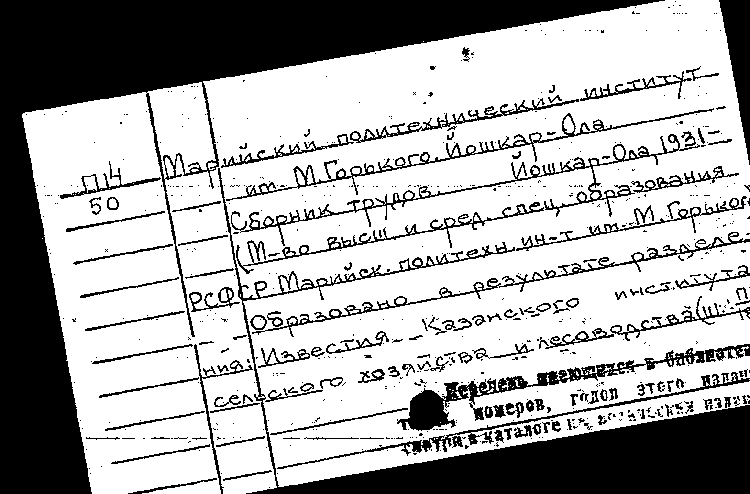 П14
50
Марийский политехнический институт
им. М. Горького. Йошкар-Ола.
Сборник трудов. Йошкар-Ола, 1931-
(М-во высш. и сред. спец. образования
РСФСР Марийск. политехн. ин-т им. М. Горького
Образовано в результате разделе-
ния: Известия Казанского института
сельского хозяйства и лесоводства (ш. П
Перечень имеющихся в библиотеке
номеров, годов этого издания
смотри в каталоге